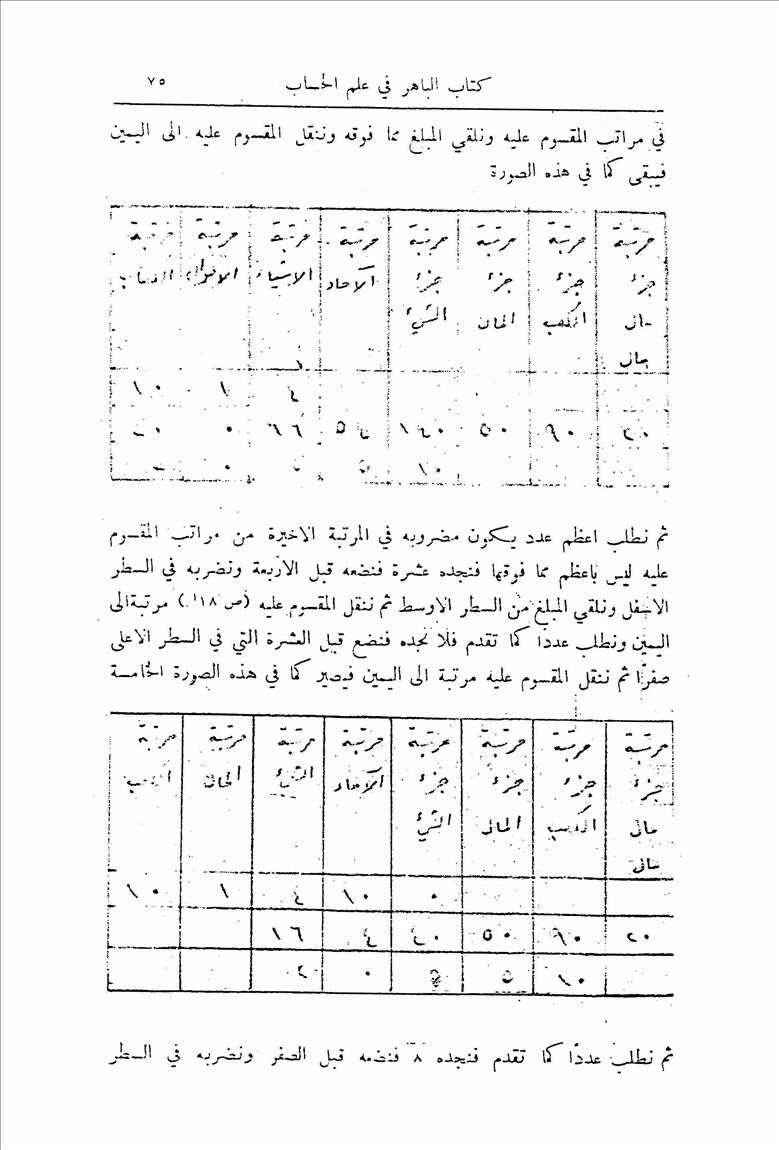 كتاب الباهر في علم الحساب ٧٥
في مراتب المقسوم عليه ونلقي المبلغ مما فوقه وننقل المقسوم عليه الى اليمين
فيبقى كما في هذه الصورة
مرتبة مرتبة مرتبة مرتبة مرتبة مرتبة مرتبة مرتبة
جزء جزء جزء جزء الآحاد الاشياء الاموال
مال الكعب المال الشيء
مال
٤ ١ ١٠
٩٠ ٥٠ ١٤٠ ٦٦ ٠
١٠ ٠
ثم نطلب اعظم عدد يكون مضروبه في المرتبة الاخيرة من مراتب المقسوم
عليه ليس باعظم مما فوقها فنجده عشرة فنضعه قبل الاربعة ونضربه في السطر
الاسفل ونلقي المبلغ من السطر الاوسط ثم ننقل المقسوم عليه (ص ١٨) مرتبة الى
اليمين ونطلب عددًا كما تقدم فلا نجده فنضع قبل العشرة التي في السطر الاعلى
صفرًا ثم ننقل المقسوم عليه مرتبة الى اليمين فيصير كما في هذه الصورة الخامسة
مرتبة مرتبة مرتبة مرتبة مرتبة مرتبة مرتبة مرتبة
جزء جزء جزء جزء الآحاد الشيء المال الكعب
مال الكعب المال الشيء
مال
٠ ١٠ ٤ ١ ١٠
٢٠ ٩٠ ٥٠ ٤٠ ٤ ١٦
١٠ ٥ ٠ ٢
ثم نطلب عددًا كما تقدم فنجده ٨ فنضعه قبل الصفر ونضربه في السطر